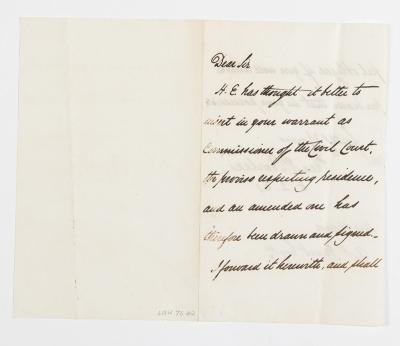 Dear Sir
H. E. has thought it better to
insert in your warrant as
Commissioner of the Civil Court,
the proviso respecting residence,
and an amended one has
therefore been drawn and signed.
I forward it herewith, and shall